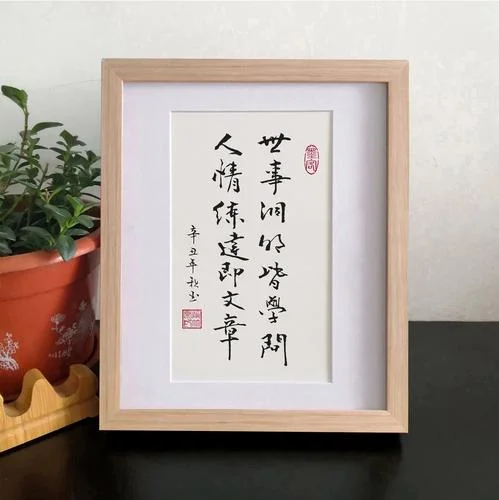 世事洞明皆學問
人情练達即文章
辛丑年秋书